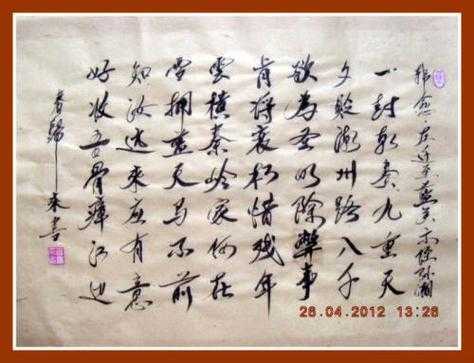 韩愈左迁至蓝关示侄孙湘
一封朝奏九重天
夕贬潮州路八千
欲为圣明除弊事
肯将衰朽惜残年
雲横秦岭家何在
雪拥蓝关马不前
知汝远来应有意
好收吾骨瘴江边
春归来書
26.04.2012 13:26